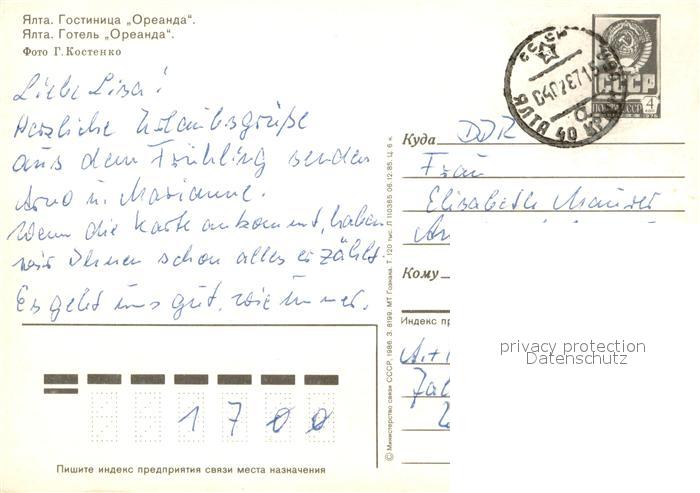 Ялта. Гостиница „Ореанда“.
Ялта. Готель „Ореанда“.
Фото Г. Костенко
Liebe Lisa!
Herzliche Urlaubsgrüße
aus dem Frühling senden
Arno u. Marianne.
Wenn die Karte ankommt, haben
wir Ihnen schon alles erzählt.
Es geht uns gut, wie immer.
1700
Пишите индекс предприятия связи места назначения
© Министерство связи СССР, 1986. З. 8199. МТ Гознака. Т. 120 тыс. Л 110385 06.12.85. Ц. 6 к.
СССР
ПОЧТА СССР
4
ЯЛТА 40
Куда DDR
Frau
Elisabeth Maurer
Кому
Индекс пр
privacy protection
Datenschutz